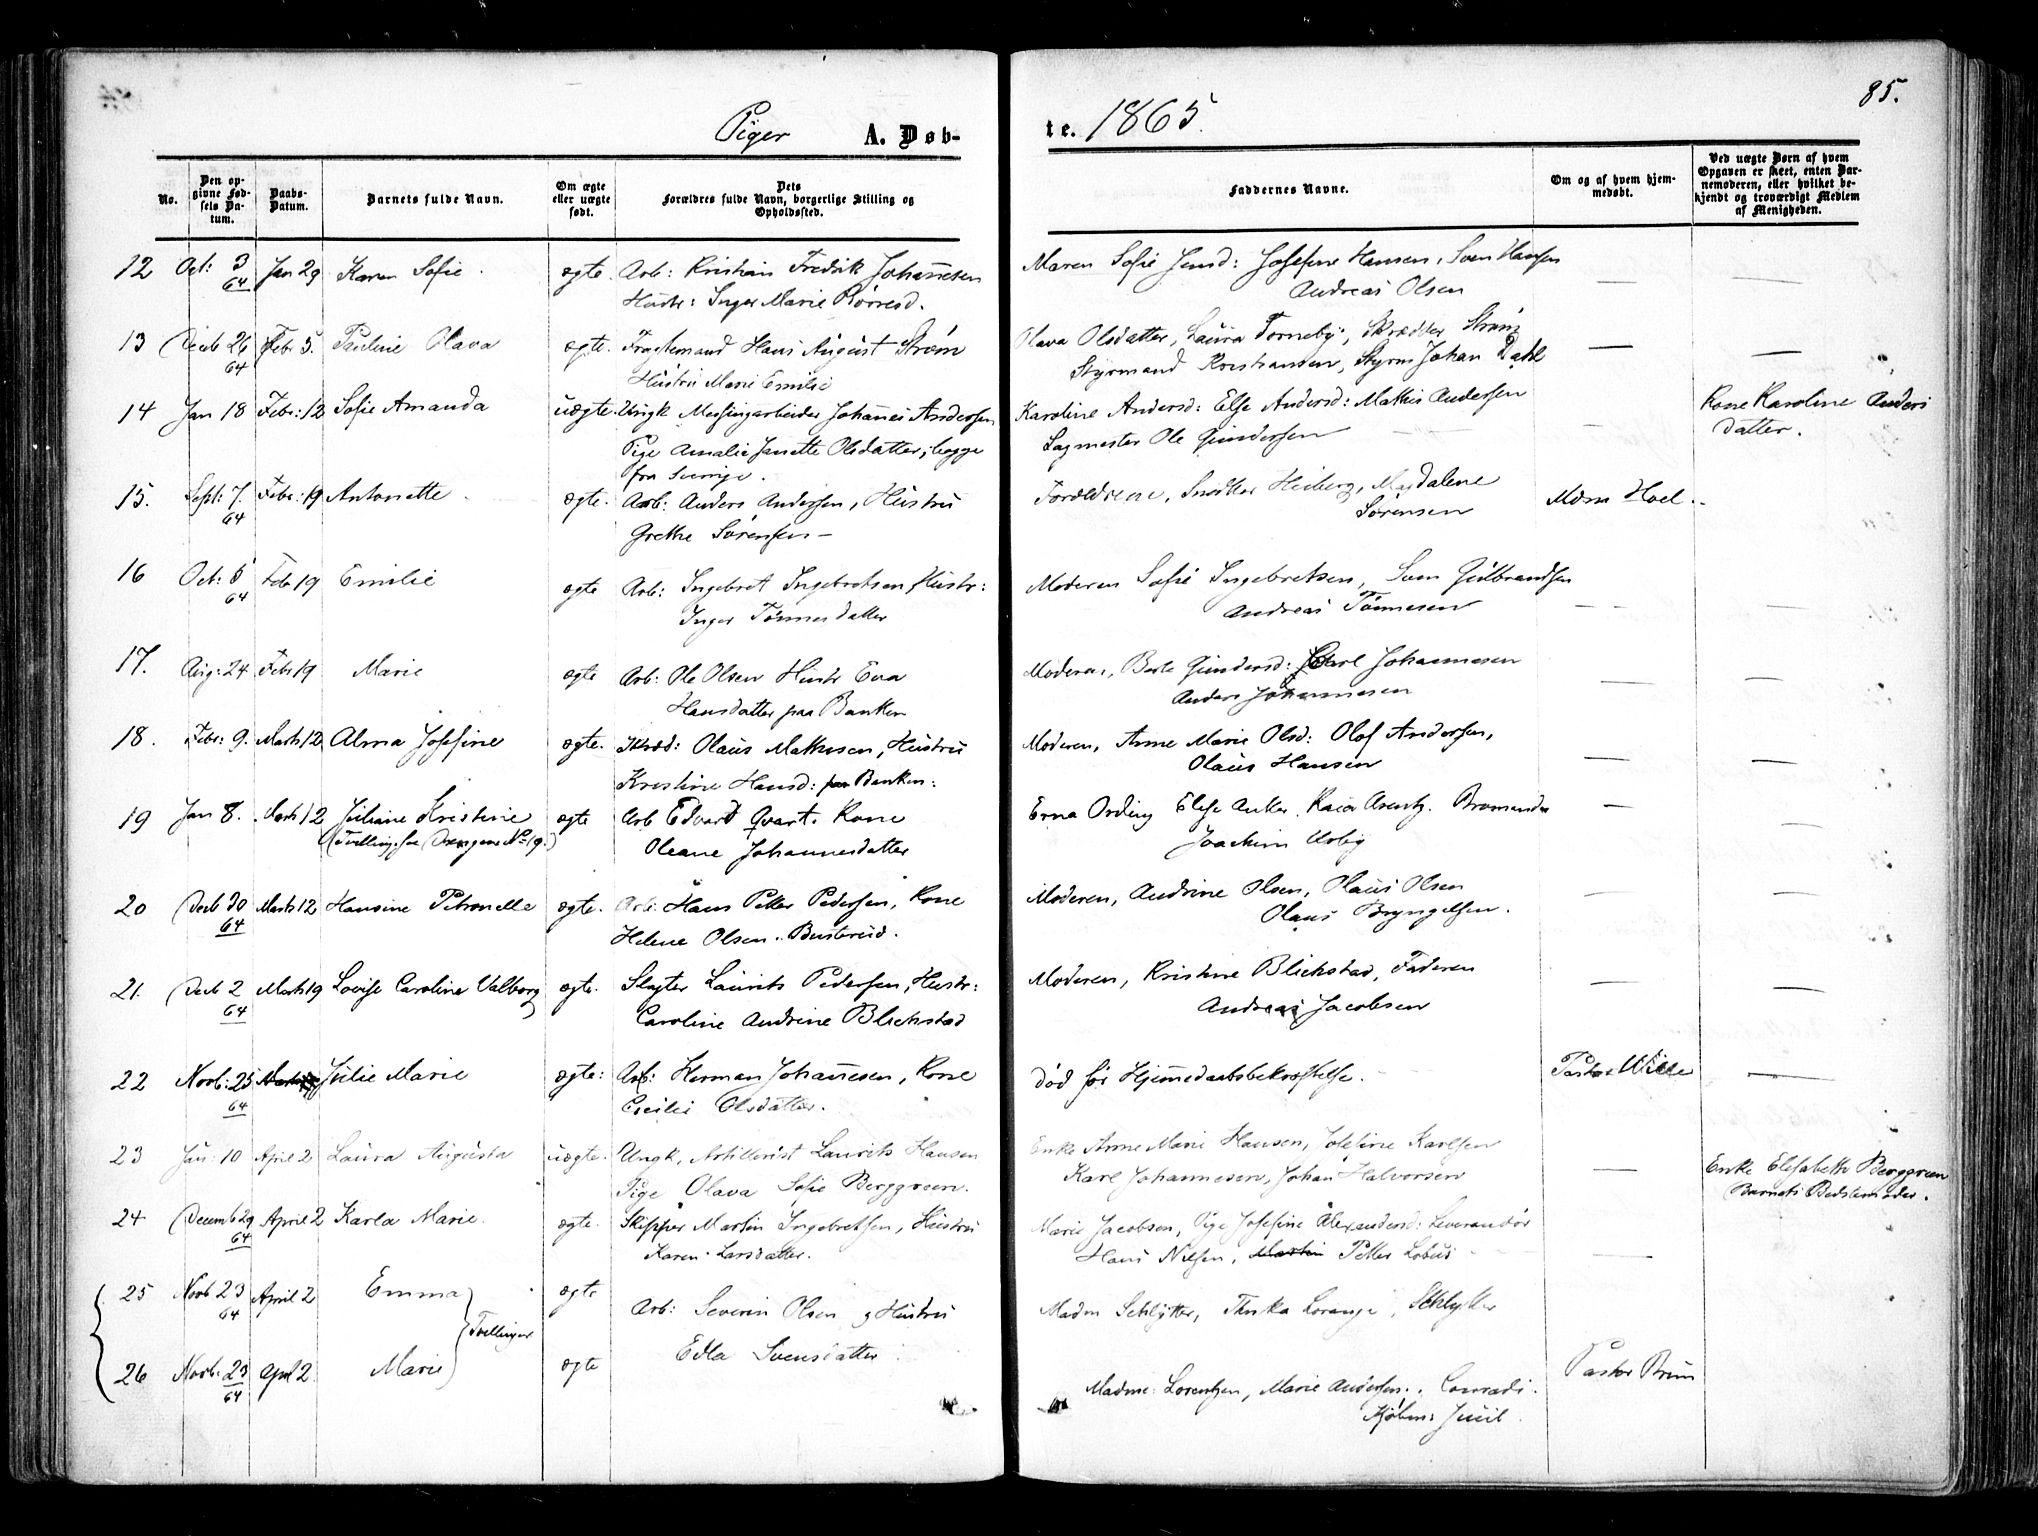 85.
Piger A. Døb-
te. 1865.
No.
Den op-
givne Fød-
sels Da-
tum.
Daabs-
Datum.
Barnets fulde Navn.
Om ægte
eller uægte
født.
Dets
Forældres fulde Navn, borgerlige Stilling og
Opholdssted.
Faddernes Navne.
Om og af hvem hjem-
medøbt.
Ved uægte Børn af hvem
Opgaven er skeet, enten Bar-
nemoderen, eller hvilket be-
kjendt og troværdigt Medlem
af Menigheden.
12 Oct: 3 Jan 29 Karen Sofie. ægte. Arb: Kristian Fredrik Johannesen Maren Sofie Jensd: Josefine Hansen, Sven Hansen
64 Hustr: Inger Marie Børresd. Andreas Olsen
13 Decb 26 Febr 5. Pauline Olava ægte. Fragtemand Hans August Strøm Olava Olsdatter, Laura Torneby, Skrædder Strøm
64 Hustru Marie Emilie Styrmand Kristiansen, Styrm Johan Dahl
14 Jan 18 Febr: 12 Sofie Amanda uægte. Ungk Messingarbeider Johanes Andersen Karoline Andersd: Else Andersd: Mathis Andersen Kone Karoline Anders
Pige Amalie Janette Olsdatter, begge Sagmester Ole Gundersen datter.
fra Sverige.
15. Sept: 7. Febr: 19 Antonette ægte. Arb: Anders Andersen, Hustru Forældrene, Snedker Heiberg, Magdalene Mdm Hoel.
64 Grethe Sørensen Sørensen
16 Oct: 6 Feb 19 Emilie ægte Arb: Ingebret Ingebretsen, Hustr: Moderen Sofie Ingebretsen, Sven Gulbrandsen
64 Inger Tönnesdatter Andreas Tönnesen
17. Aug: 24 Febr 19 Marie ægte Arb: Ole Olsen Hustr Eva Moderen, Berte Gundersd: Carl Johannesen
Hansdatter paa Banken Anders Johannesen
18. Febr: 9. Marts 12 Alma Josefine ægte. Skræd: Olaus Mathisen, Hustru Moderen, Anne Marie Olsd: Olof Andersen,
Kristine Hansd: paa Banken: Olaus Hansen
19 Jan 8. Marts 12 Juliane Kristine ægte Arb Edvard Qvart. Kone Erna Ording Elise Anker, Kaia Arentz. Brømander
(Tvilling, se Drengene No 19.) Oleane Johannesdatter Joachim Urbye
20 Decb 30 Marts 12 Hansine Petronelle ægte. Arb: Hans Petter Pedersen, Kone Moderen, Andrine Olsen, Olaus Olsen
64 Helene Olsen. Busterud. Olaus Bryngelsen.
21. Decb 2 Marts 19 Lovise Caroline Valborg ægte. Slagter Laurits Pedersen, Hustr: Moderen, Kristine Blichstad, Faderen
64 Caroline Andrine Blichstad Andreas Jacobsen
22 Novb: 25 Julie Marie ægte: Arb: Herman Johannesen, Kone død før Hjemmedaabsbekræftelse. Pastor Wille
64 Cecilie Olsdatter.
23 Jan: 10 April 2 Laura Augusta uægte. Ungk, Artillerist Laurits Hansen Enke Anne Marie Hansen, Josefine Karlsen Enke Elisabeth Berggreen
Pige Olava Sofie Berggreen. Karl Johannesen, Johan Halvorsen Barnets Bedstemoder.
24 Decemb 29 April 2 Karla Marie. ægte. Skipper Martin Ingebretsen, Hustru Marie Jacobsen, Pige Josefine Alexandersd: Leverandør
64 Karen Larsdatter. Hans Nilsen, Martin Petter Lobus
25 Novb 23 April 2 Emma ægte Arb: Severin Olsen, og Hustru Madm Schlytter, Thrika Lorange, Schlytter
64 Tvillinger Edla Svensdatter
26 Novb: 23 April 2 Marie ægte Madme: Lorentzen, Marie Andersen. Conradi. Pastor Brun
64 Kjøbm: Juul.